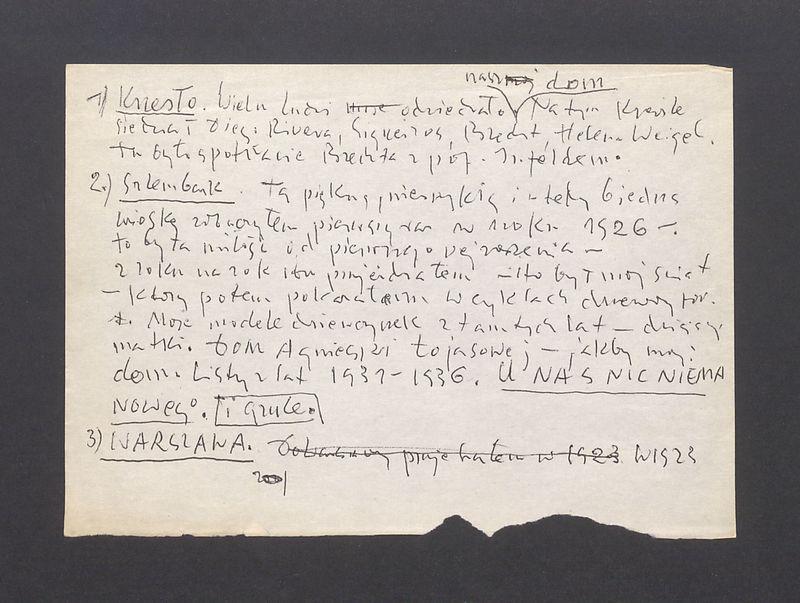 nasz dom
1) Krzesło. Wielu ludzi odwiedzało Na tym Krześle
siedział Diego Rivera, Siqueiros, Brecht, Helena Weigel.
tu było spotkanie Brechta z prof. Infeldem.
2.) Szlembark. Tą piękną, i wtedy biedną
wioskę zobaczyłem pierwszy raz w roku 1926 –.
to była miłość od pierwszego wejrzenia –
z roku na rok tam przyjeżdżałem – to był mój świat
– który potem pokazałem w cyklach drzeworyt.
Moje modele dziewczynek z tamtych lat – dzisiaj
matki. Dom Agnieszki Łojasowej – jakby mój
dom. Listy z lat 1931–1936. U NAS NIC NIEMA
NOWEGO.
3) WARSZAWA. przyjechałem w 1923 W 1923